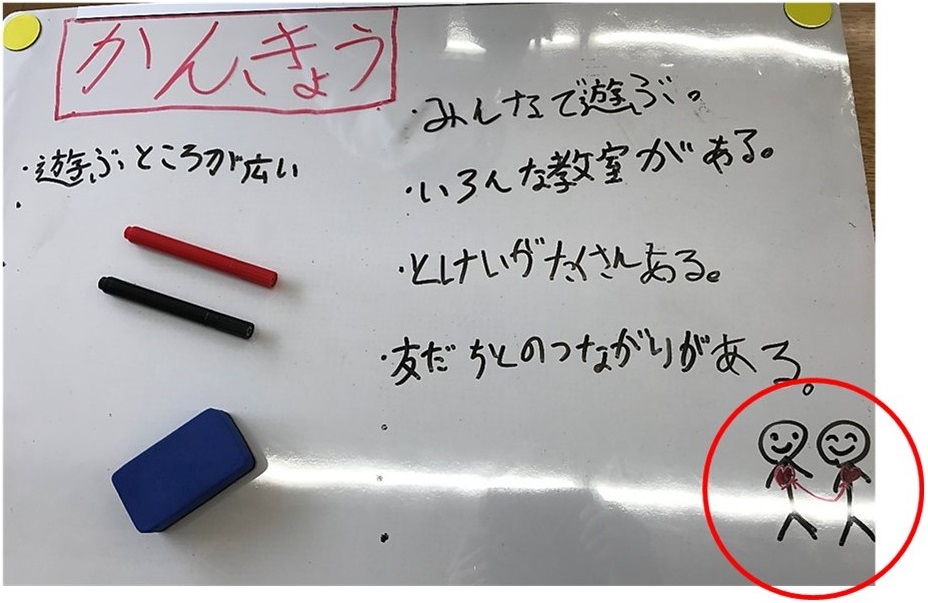 かんきょう
・遊ぶところが広い
・みんなで遊ぶ。
・いろんな教室がある。
・とけいがたくさんある。
・友だちとのつながりがある。